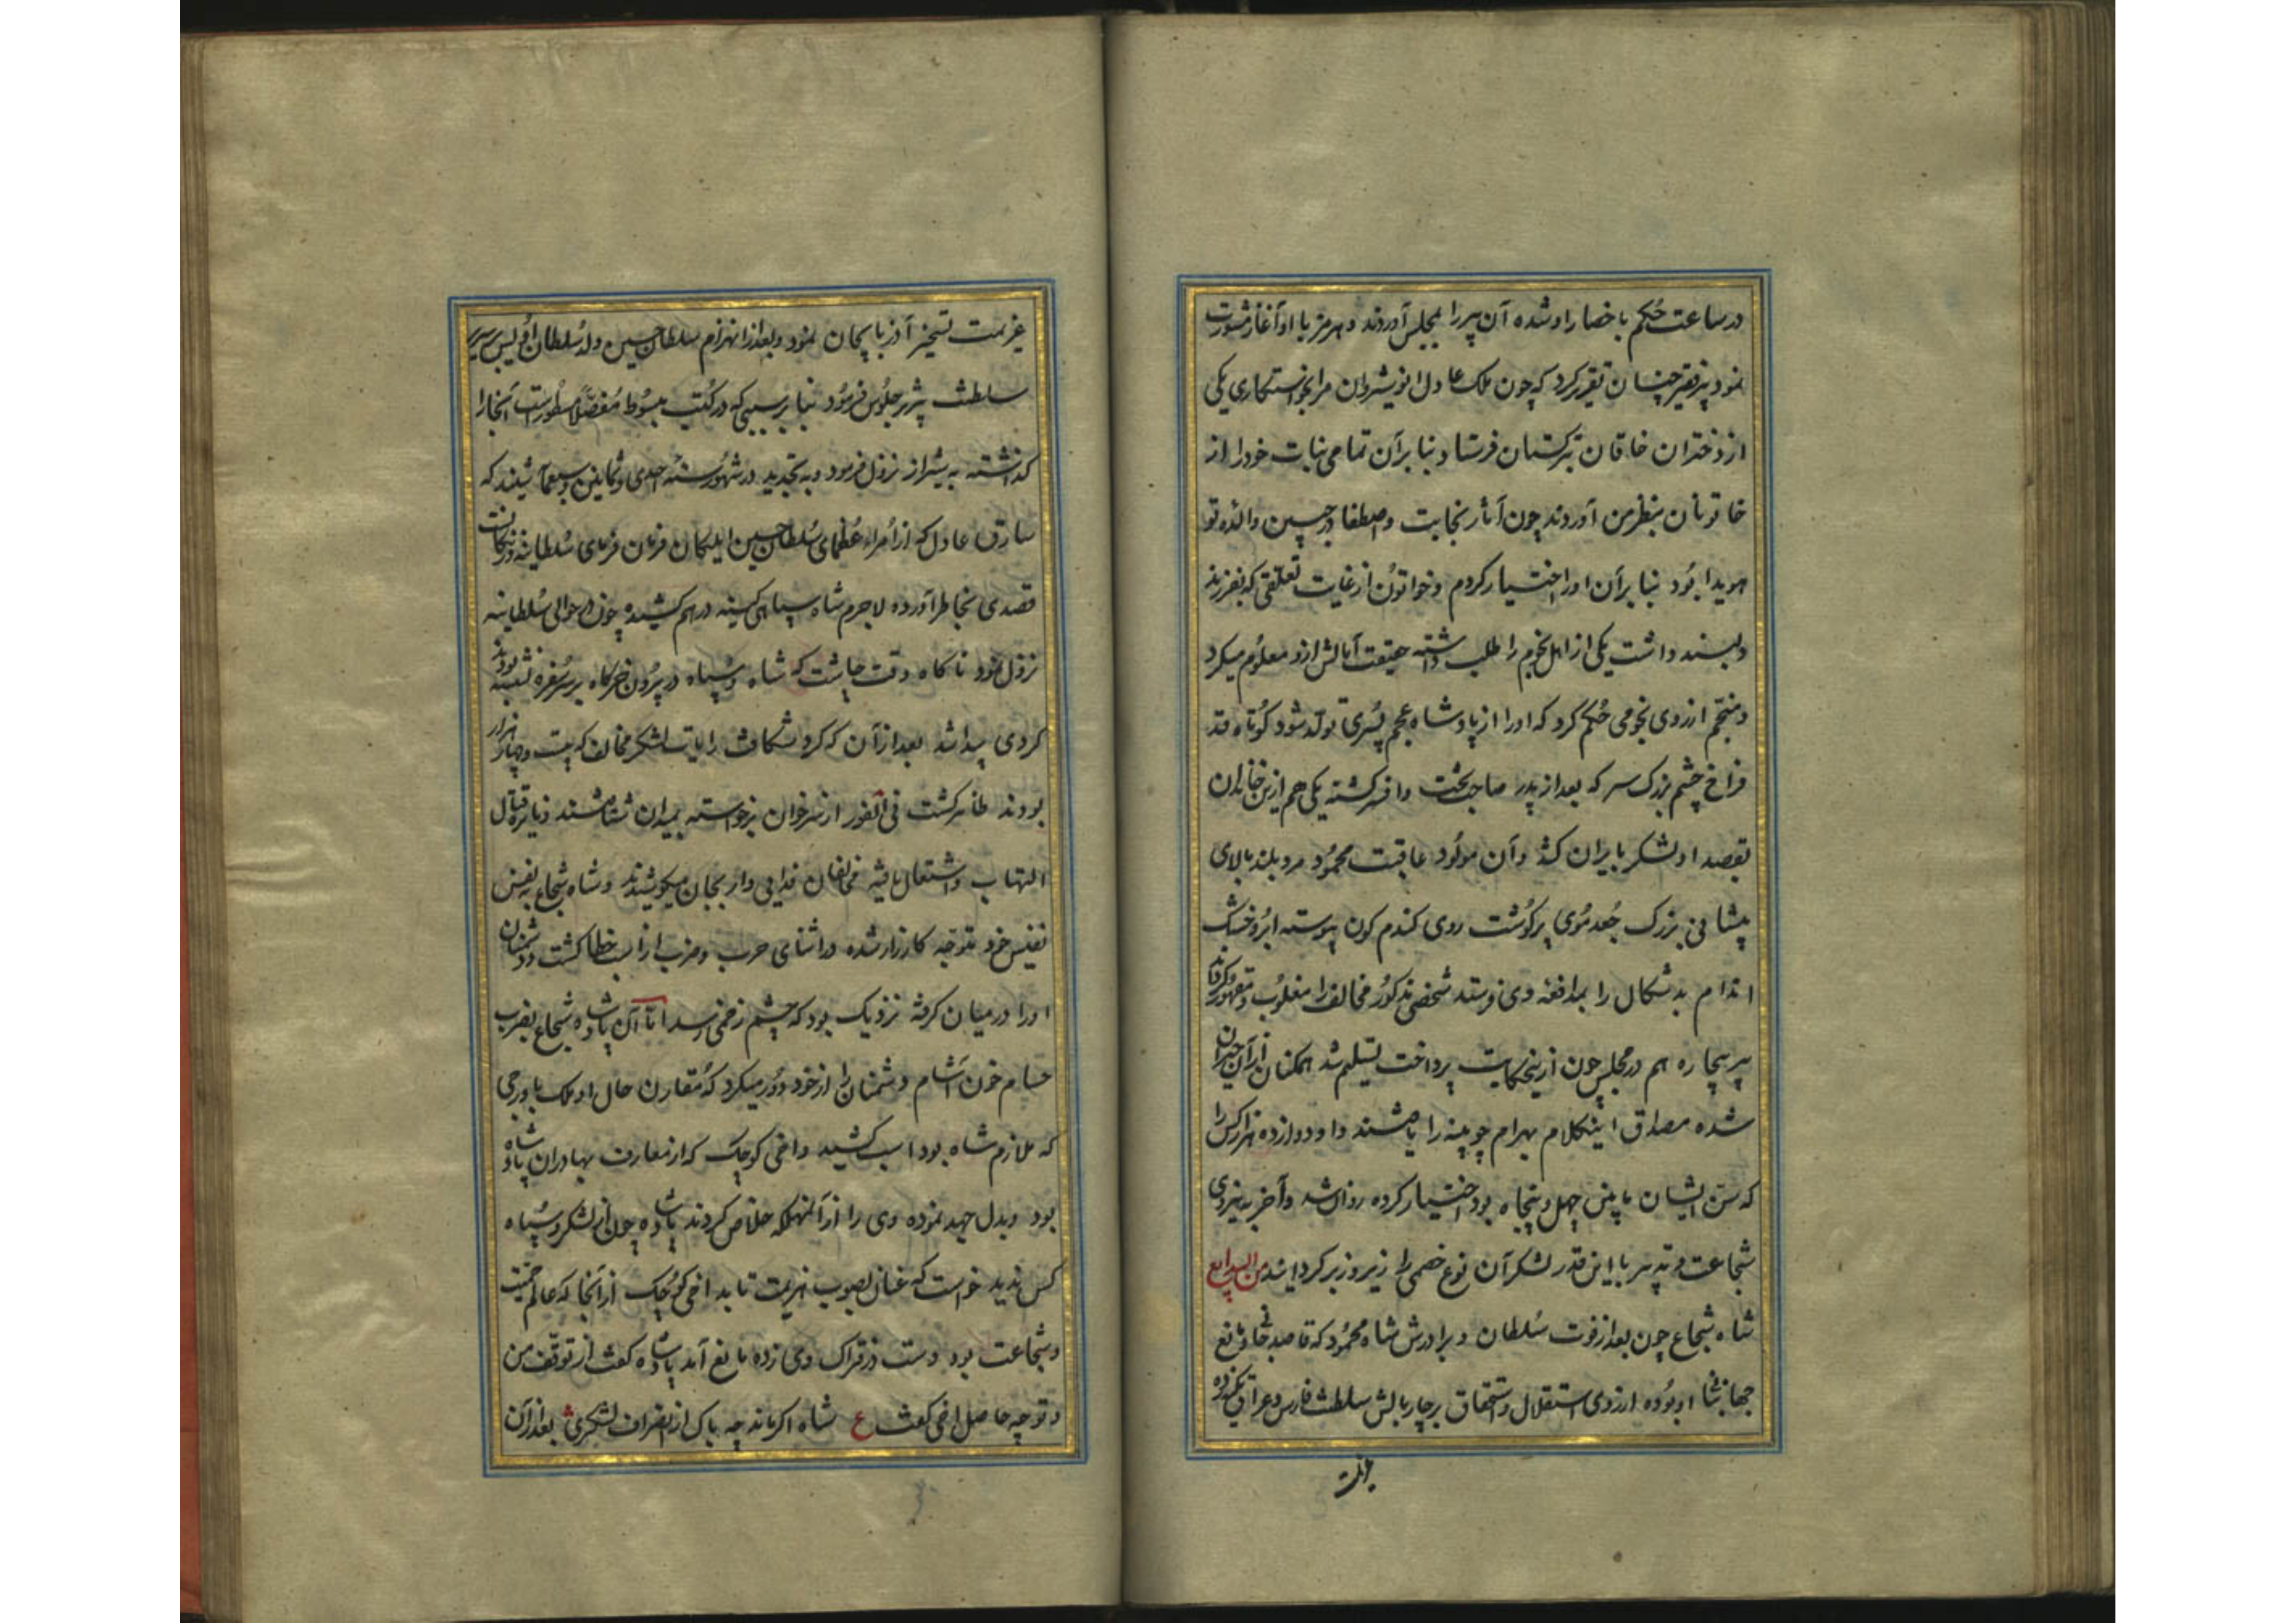 در ساعت حکم باحضار او شده آن پیر را بمجلس آوردند و هرمز با او آغاز مشورت
نمود پیر فقیر چنان تقریر کرد که چون ملک عادل انوشیروان مرا بخواستکاری یکی
از دختران خاقان ترکستان فرستاد بنا بر آن تمامی بنات خود را از
خاتونان بنظر من آوردند چون آثار نجابت و اصطفا در جبین والده تو
هویدا بود بنا بر آن او را اختیار کردم و خواتون از غایت تعلقی که بفرزند
دلبند داشت یکی از اهل نجوم را طلب داشته حقیقت آمالش ازو معلوم میکرد
و منجم از روی نجومی حکم کرد که او را از پادشاه عجم پسری تولد شود کوتاه قد
فراخ چشم بزرک سر که بعد از پدر صاحب تخت و افسر کشته یکی هم ازین خاندان
بقصد او لشکر بایران کشد و آن مولود عاقبت محمود مرد بلند بالای
پیشانی بزرک جعد موی پرکوشت روی کندم کون پیوسته ابرو خشک
اندام بد شکال را بمدافعه وی فرستد شخص مذکور مخالف را مغلوب و مقهور کرداند
پیر بیچاره هم در مجلس چون ازین حکایت پرداخت تسلیم شد همکنان از آن حیران
شده مصداق اینکلام بهرام چوبینه را یافتند و او دوازده هزار کس را
که سن ایشان مابین چهل و پنجاه بود اختیار کرده روان شد و آخر به نیروی
شجاعت و تدبیر با این قدر لشکر آن نوع خصمی را زیر و زبر کردانید من البدایع
شاه شجاع چون بعد از فوت سلطان و برادرش شاه محمود که قاصد جان و مانع
جهانبانی او بوده از روی استقلال و استحقاق بر چاربالش سلطنت فارس و عراق تکیه زده
عزیمت
عزیمت تسخیر آذربایجان نمود و بعد از انهزام سلطان حسین ولد سلطان اویس بر سریر
سلطنت تبریز جلوس فرمود بنا بر سببی که در کتب مبسوط مفصلا مسطورست آنجا را
کذاشته به شیراز نزول فرمود و به تجدید در شهور سنه احدی و ثمانین و سبعمائه شنید که
سارق عادل که از امراء عظمای سلطان حسین ایلکان فرمان فرمای سلطانیه و زنکانست
قصدی بخاطر آورده لاجرم شاه سپاهی کینه در هم کشیده چون در حوالی سلطانیه
نزول نمود ناکاه وقت چاشت که شاه و سپاه در بیرون خرکاه بر سر سفره نشسته بودند
کردی پیدا شد بعد از آن که کرد شکافت رایات لشکر مخالف که بیست و چهار هزار
بودند ظاهر کشت فی الفور از سر خوان برخواسته بمیدان شتافتند و نایره قتال
التهاب و اشتعال یافته مخالفان فدایی وار بجان میکوشیدند و شاه شجاع به نفس
نفیس خود متوجه کارزار شده در اثنای حرب و ضرب از اسب خطا کشت و دشمنان
او را در میان کرفته نزدیک بود که چشم زخمی رسد اما آن پادشاه شجاع بضرب
حسام خون آشام دشمنان را از خود دور میکرد که مقارن حال او ملک باورجی
که ملازم شاه بود اسب کشید و اخی کوچک که از معارف بهادران پادشاه
بود و بذل جهد نموده وی را از آن مهلکه خلاص کردند پادشاه چون از لشکر و سپاه
کس ندید خواست که عنان بصوب هزیمت تابد اخی کوچک از آنجا که عالم حمیت
و شجاعت بود دست در فتراک وی زده مانع آمد پادشاه کفت از توقف من
و تو چه حاصل اخی کفت ع شاه اکر ماند چه باک از انصراف لشکری بعد از آن